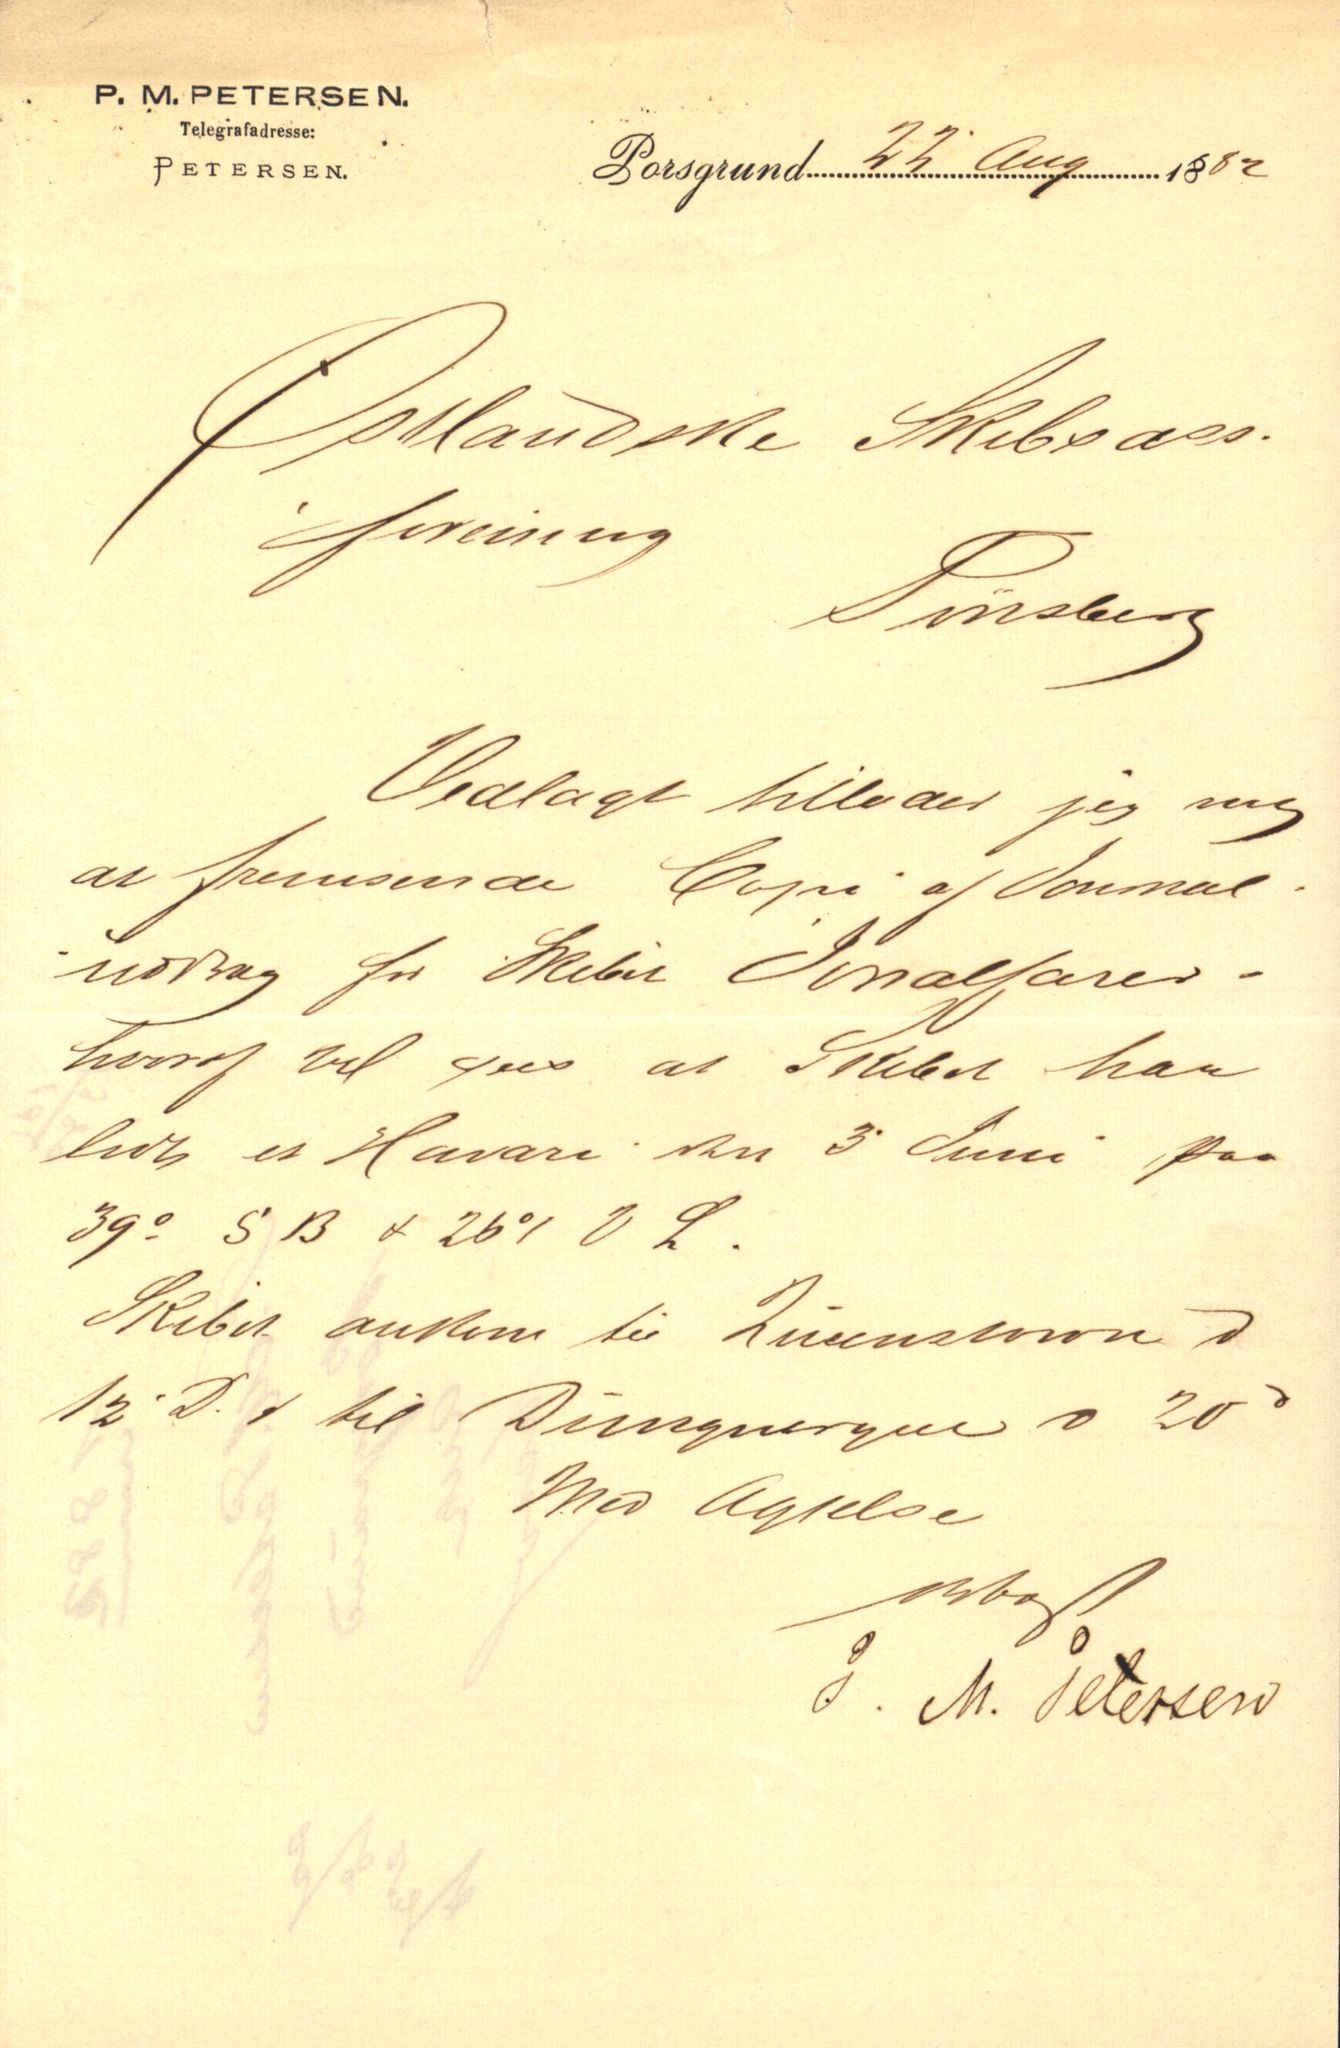 P. M. PETERSEN.
Telegrafadresse:
PETERSEN.
Porsgrund 22 Aug 1882
Østlandske Skibsass.
forening
Tönsberg
Vedlagt tillader jeg mig
at fremsende Copi af Journal-
-uddrag for Skibet
hvoraf vil sees at Skibet har
lidt et Havari den 3 Juni paa
39° S B & 26° V L.
Skibet ankom til Queenstown d
12 D. & til Dunquerque d 20 d
Med Agtelse
P. M. Petersen